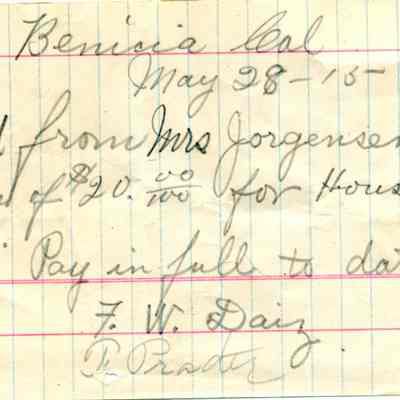 Benicia Cal
May 28-15-
from Mrs Jorgensen
of $20. 00/100 for Hous
Pay in full to da
F. W. Daiz